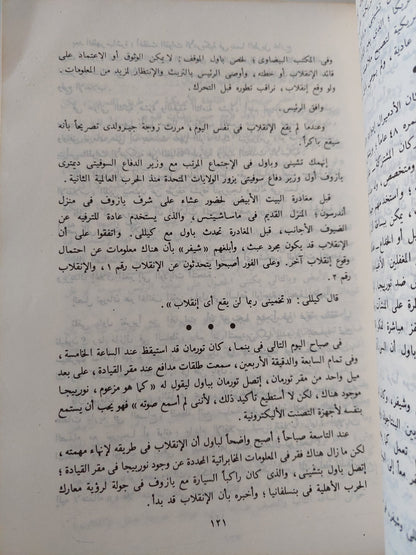 وفى المكتب البيضاوى؛ لخص باول الموقف: لا يمكن الوثوق أو الاعتماد على
قائد الإنقلاب أو خطته، وأوصى الرئيس بالتريث والإنتظار لمزيد من المعلومات.
ولو وقع إنقلاب، نراقب تطوره قبل التحرك.
وافق الرئيس.
وعندما لم يقع الإنقلاب فى نفس اليوم، مررت زوجة جيرولدى تصريحاً بأنه
سيقع باكراً.
إنهمك تشينى وباول فى الإجتماع المرتب مع وزير الدفاع السوفيتى ديمترى
يازوف أول وزير دفاع سوفيتى يزور الولايات المتحدة منذ الحرب العالمية الثانية.
قبل مغادرة البيت الأبيض لحضور عشاء على شرف يازوف فى منزل
أندرسون؛ المنزل القديم فى ماساشيتس، والذى يستخدم عادة للترفيه عن
الضيوف الأجانب، قبل المغادرة تحدث باول مع كيللى. واتفقوا على أن
الإنقلاب قد يكون مجرد عبث، وأبلغهم « شيفر » بأن هناك معلومات عن احتمال
وقوع إنقلاب آخر. وعلى الفور أصبحوا يتحدثون عن الإنقلاب رقم ١، والإنقلاب
رقم ٢.
قال كيللى: « تخمينى ربما لن يقع أى إنقلاب ».
فى صباح اليوم التالى فى بنما، كان تورمان قد استيقظ عند الساعة الخامسة،
وفى تمام السابعة والدقيقة الأربعين، سمعت طلقات مدافع عند مقر القيادة، على بعد
ميل واحد من مقر تورمان، إتصل تورمان بباول ليقول له « كما هو مزعوم، نورييجا
موجود هناك، لكن لا أستطيع تأكيد ذلك، لأننى لم أسمع صوته » فهو يحب أن يستمع
بنفسه لأجهزة التصنت الأليكترونية.
عند التاسعة صباحاً؛ أصبح واضحاً لباول أن الإنقلاب فى طريقه لإنهاء مهمته،
لكن مازال هناك فقر فى المعلومات المخابراتية المحددة عن وجود نورييجا فى مقر القيادة؛
إتصل باول بتشينى، والذى كان راكباً السيارة مع يازوف فى جولة لرؤية معارك
الحرب الأهلية فى بنسلفانيا؛ وأخبره بأن الإنقلاب قد بدأ.
١٢١